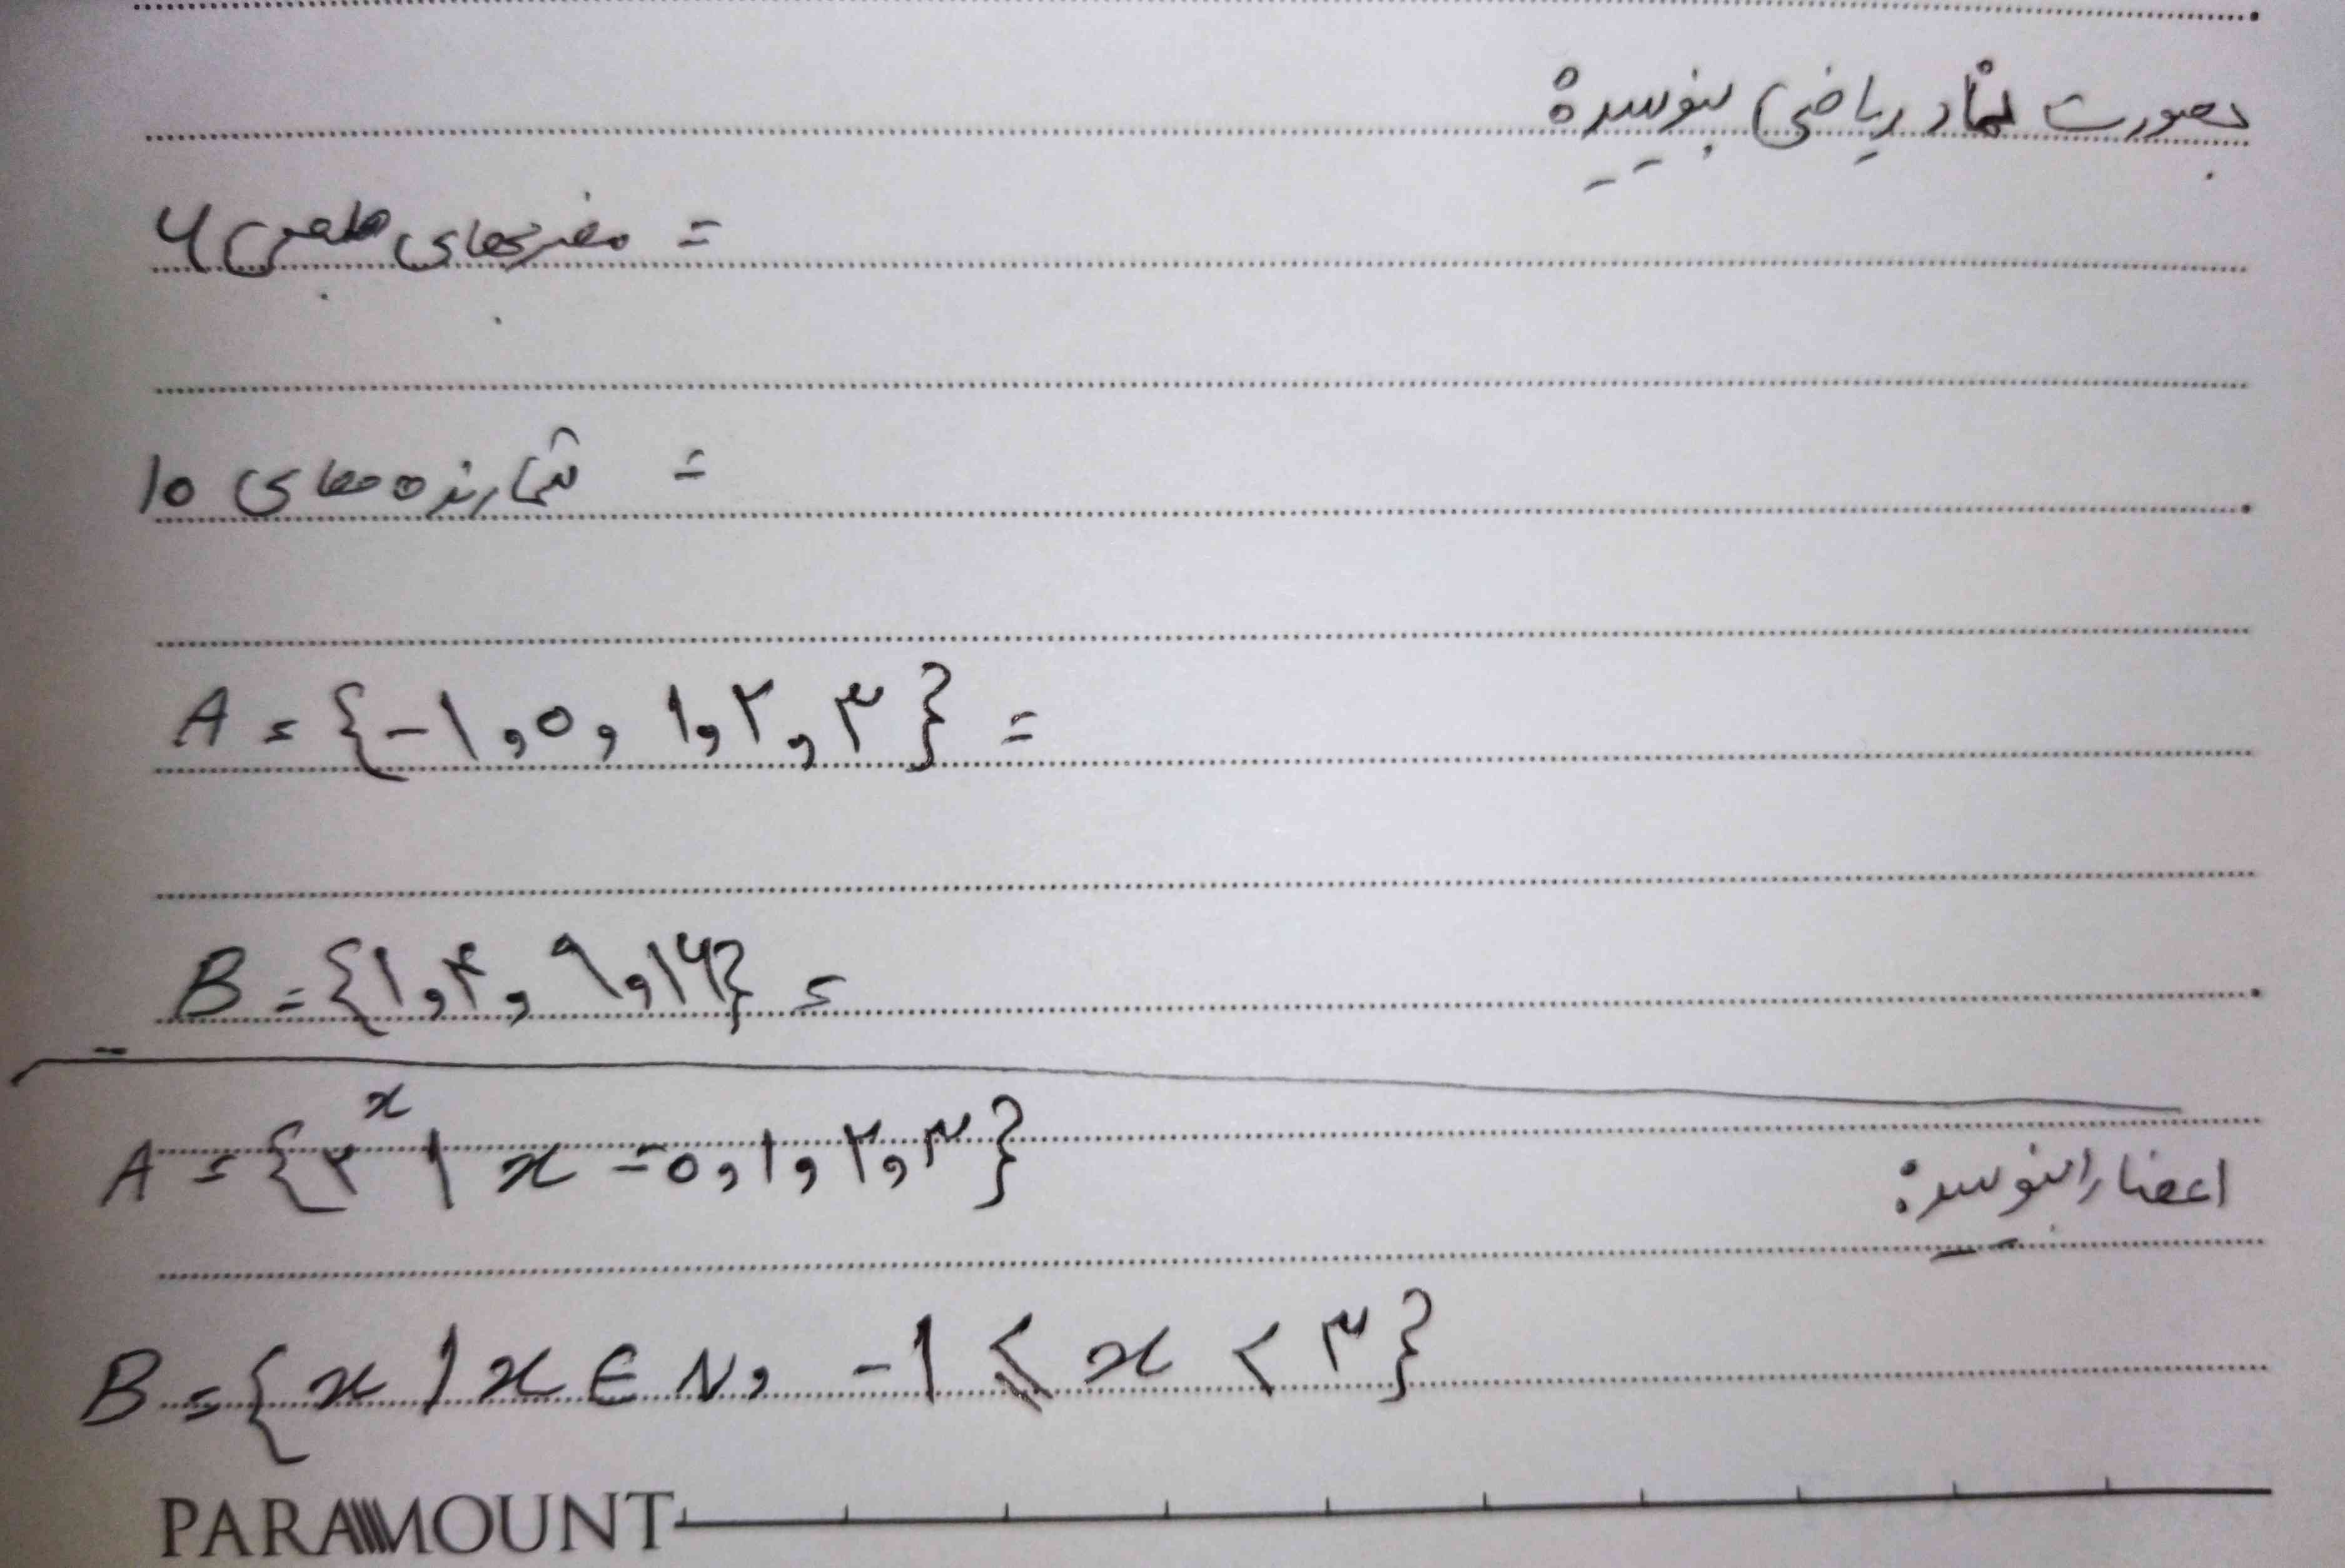 بصورت نماد ریاضی بنویسید:
مضربهای طبیعی ۶ =
شمارنده های ۱۰ =
A = {-۱, ۰, ۱, ۲, ۳} =
B = {۱, ۴, ۹, ۱۶} =
اعضا را بنویسید:
A = {۲^x | x = ۰, ۱, ۲, ۳}
B = {x | x ∈ N, -۱ ⩽ x < ۳}
PARAMOUNT